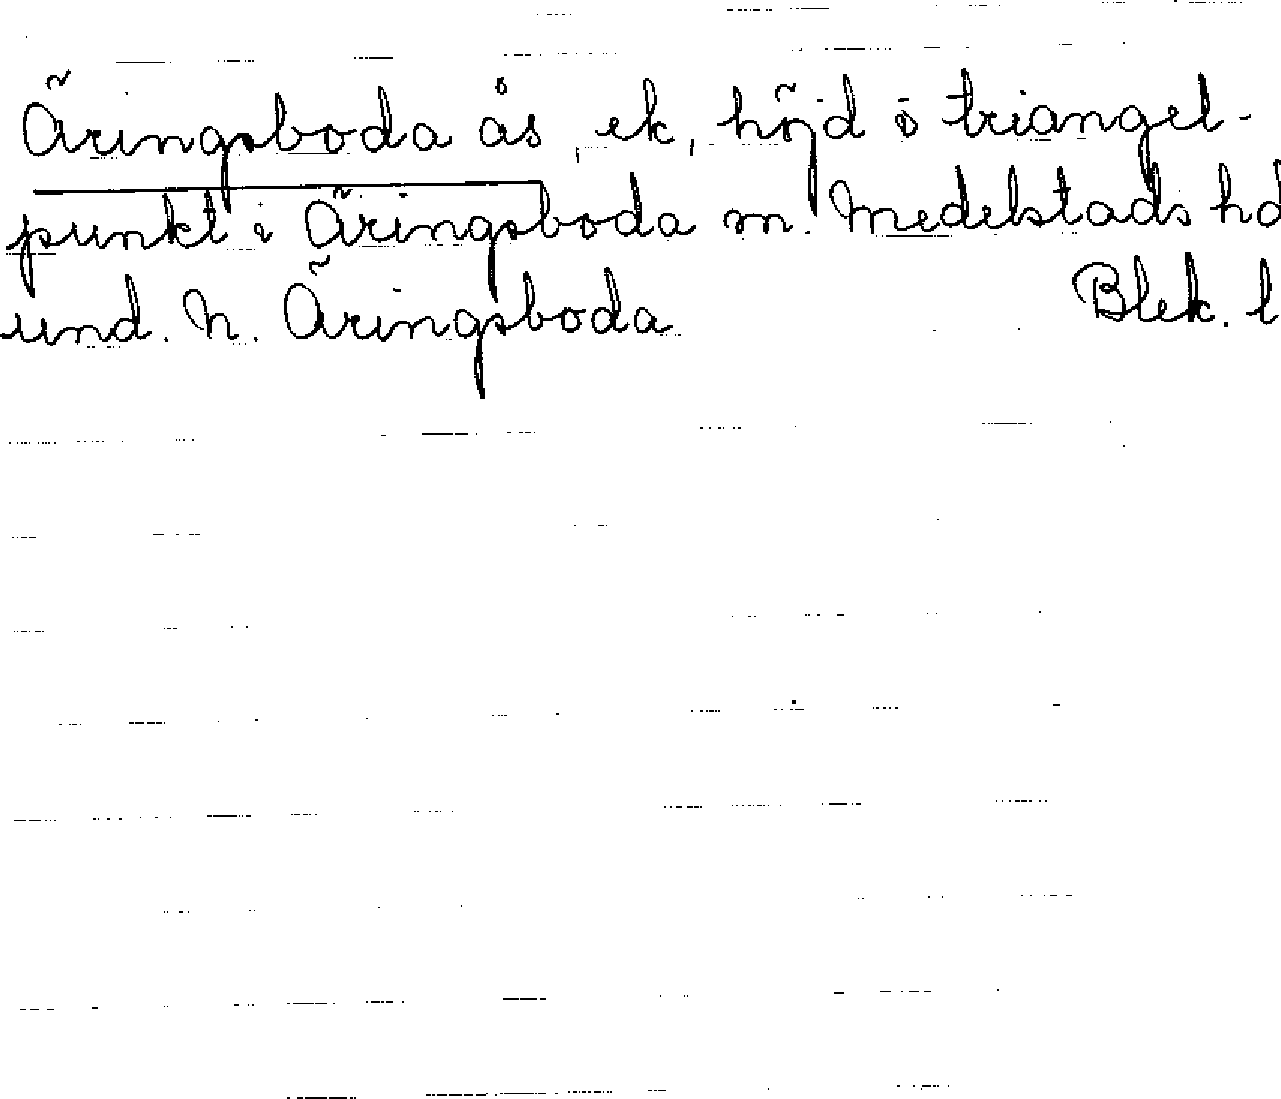 Äringsboda ås, ek, höjd o triangel-
punkt i Äringsboda m. Medelstads hd
und. N. Äringsboda Blek. l